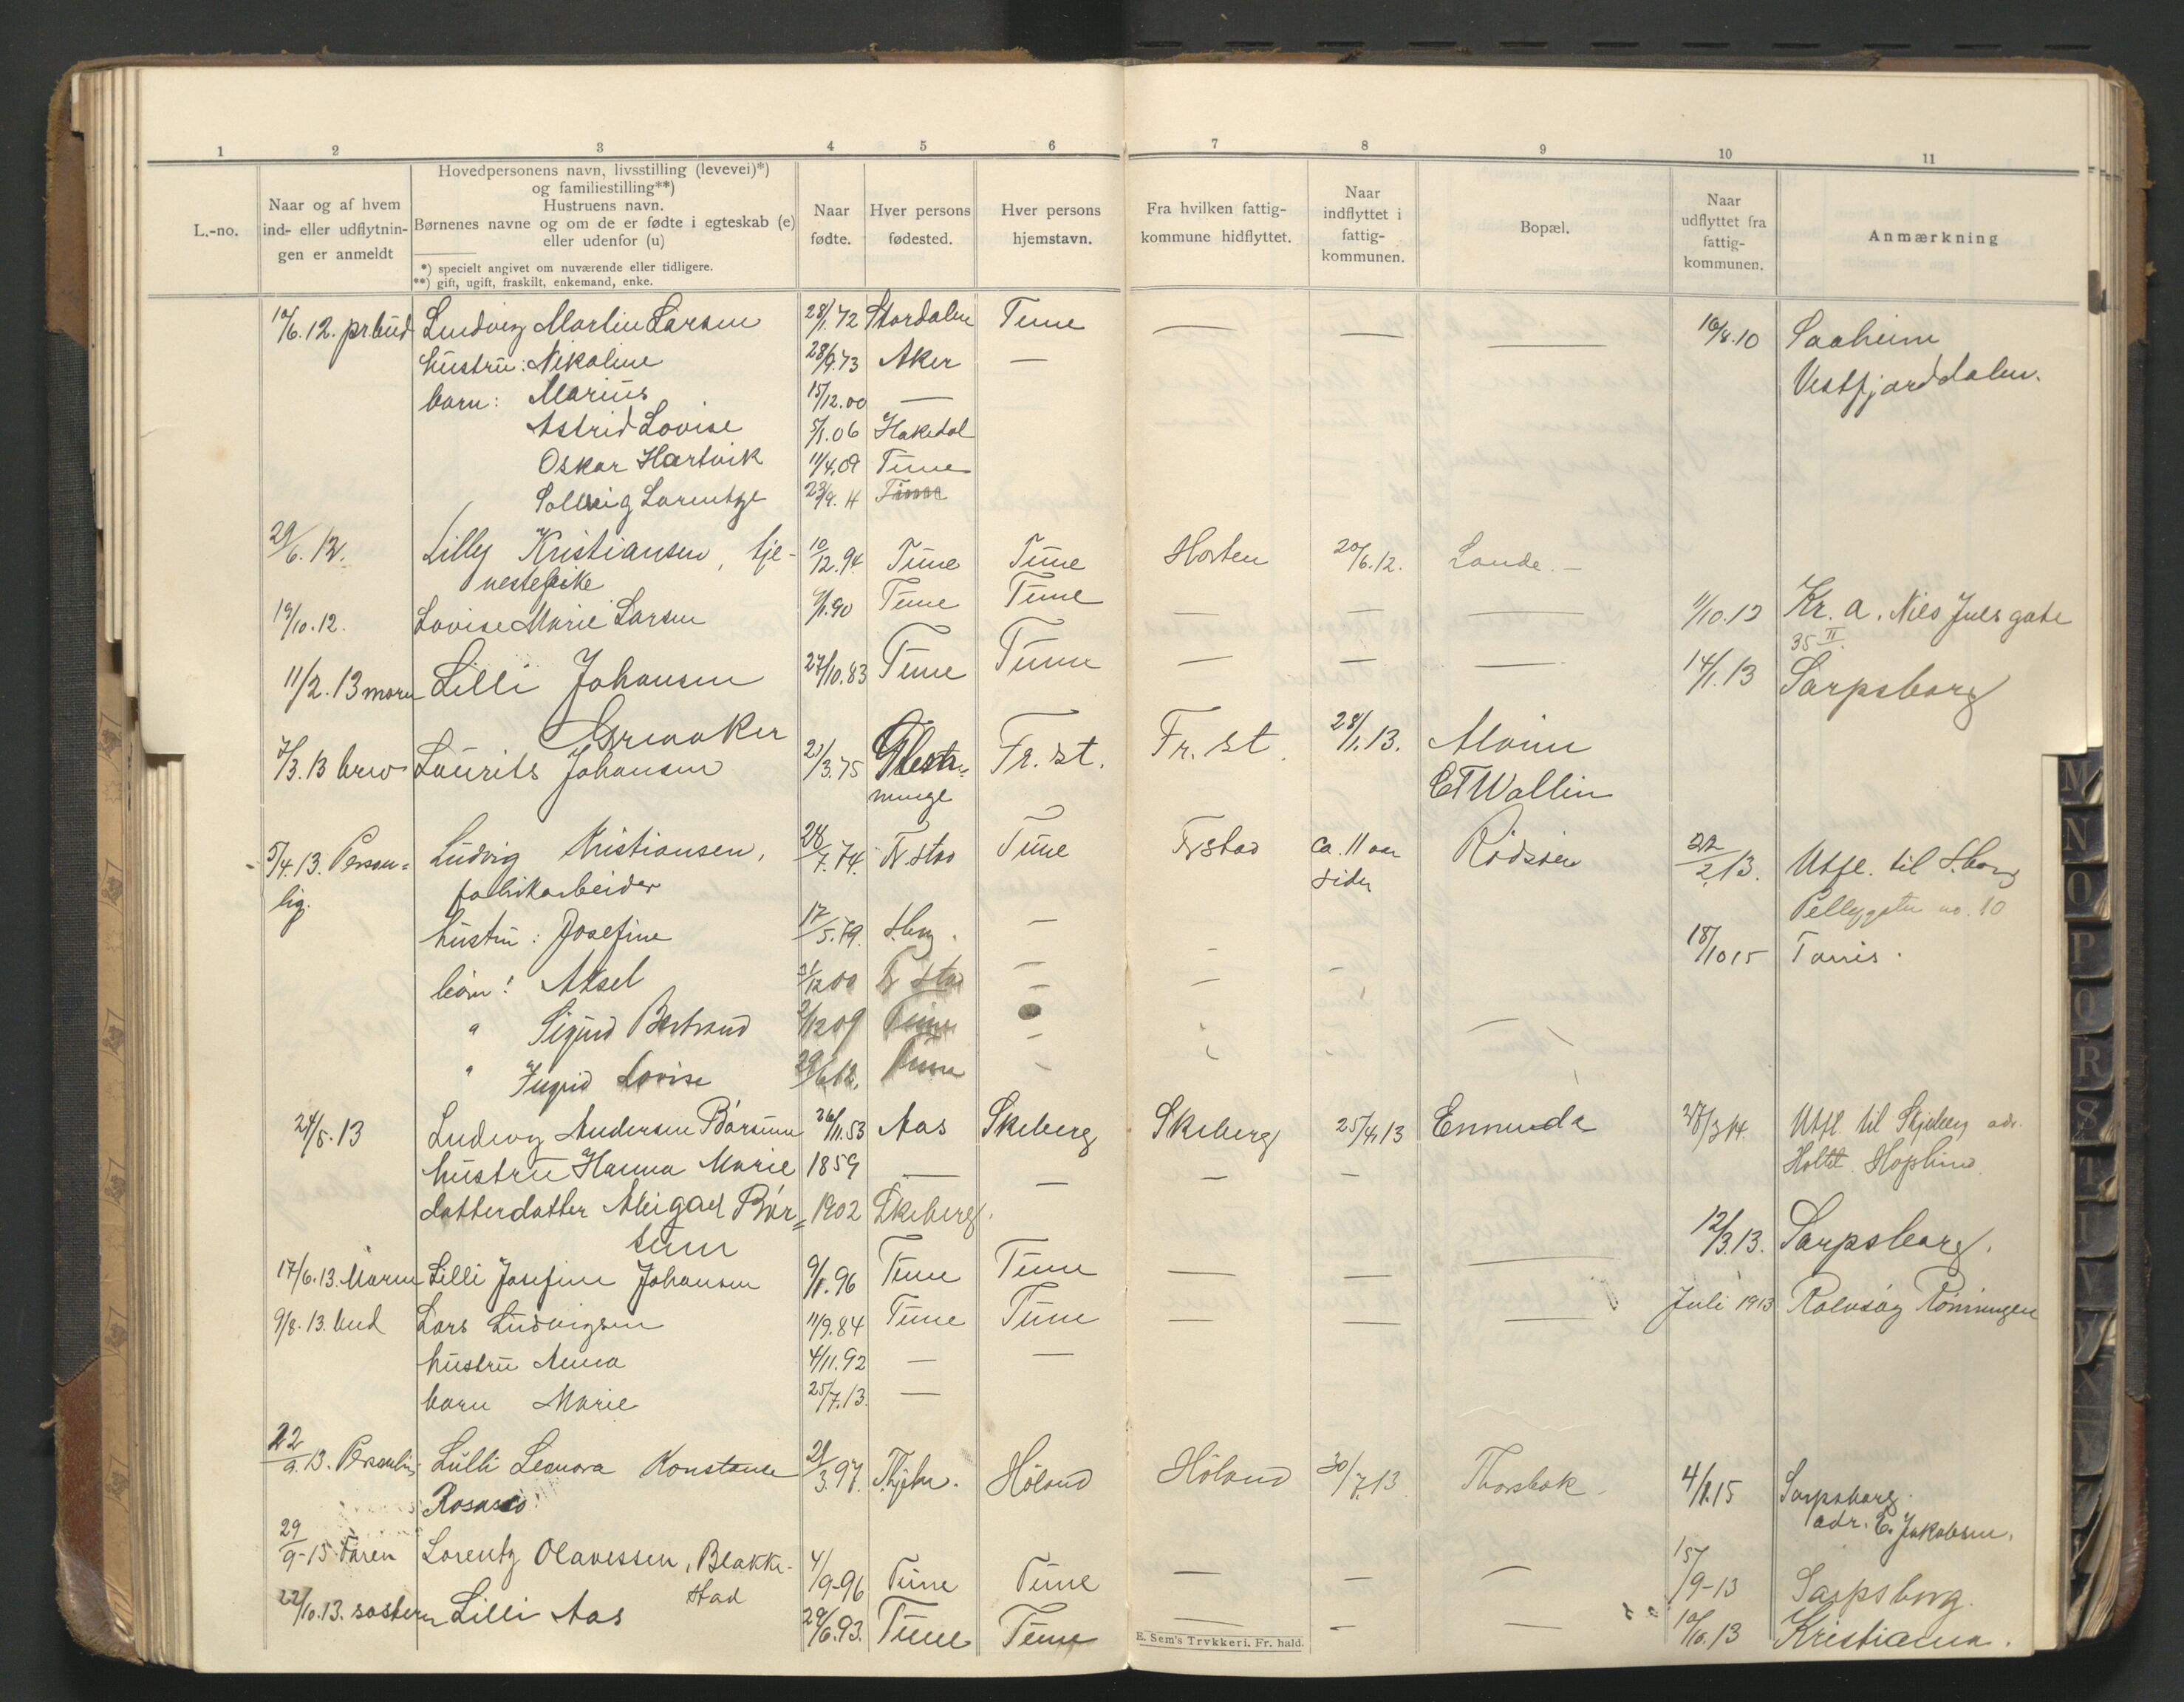 1 2 3 4 5 6 7 8 9 10 11
L.-no.
Naar og af hvem
ind- eller udflytnin-
gen er anmeldt
Hovedpersonens navn, livsstilling (levevei)*)
og familiestilling**)
Hustruens navn.
Børnenes navne og om de er fødte i egteskab (e)
eller udenfor (u)
*) specielt angivet om nuværende eller tidligere.
**) gift, ugift, fraskilt, enkemand, enke.
Naar
fødte.
Hver persons
fødested.
Hver persons
hjemstavn.
Fra hvilken fattig-
kommune hidflyttet.
Naar
indflyttet i
fattig-
kommunen.
Bopæl.
Naar
udflyttet fra
fattig-
kommunen.
Anmærkning
10/6.12. pr. bud Ludvig Martin Larsen 28/1.72 Stordalen Tune — — — 16/8.10 Saaheim
hustru: Nikoline 28/9.73 Aker — Vestfjorddalen.
barn: Marius 15/12.00 —
Astrid Lovise 5/1.06 Hakedal
Oskar Hartvik 11/4.09 Tune
Solveig Larentze 23/9.11 Tune
29/6.12. Lilly Kristiansen, tje- 10/12.94 Tune Tune Horten 20/6.12. Lande. —
nestepike
19/10.12. Lovise Marie Larsen 9/1.90 Tune Tune — — — 11/10.12 Kr. a. Niels Juels gate
35 II.
11/2.13 moren Lilli Johansen 27/10.83 Tune Tune — — — 14/1.13 Sarpsborg
Greaaker
7/3.13 brev Laurits Johansen 21/3.75 Glem- Fr. st. Fr. st. 28/1.13. Alvim
minge E T Wallin
5/4.13. Person- Ludvig Kristiansen, 28/7.74. Fr.stad Tune Frstad ca. 11 aar Rødsøen 22/2.13. Utfl. til S.borg
lig. fabrikarbeider siden Pellygaten no. 10
hustru: Josefine 17/5.79. S.borg. — 18/10 15 Torris.
børn: Aksel 31/12 00 Fr stad — — —
" Sigurd Bertrand 2/12 09 Tune — —
" Ingrid Lovise 29/6 12. Tune
24/5.13 Ludvig Andersen Børsum 26/11.53 Aas Skeberg Skeberg 25/4.13 Ennerda 28/3 14. Utfl. til Skjeberg adr.
hustru Hanna Marie 1859 — — — — Holtet. Hoplund.
datterdatter Abigael Bør- 1902 Skeberg.
sum
17/6.13. Moren Lilli Josefine Johansen 9/1.96 Tune Tune — — — 12/3.13. Sarpsborg.
9/8.13. bud Lars Ludvigsen 11/9.84 Tune Tune — — — Juli 1913 Rolvsøy Rønningen
hustru Anna 4/11.92 — —
barn Marie 25/7.13. —
22/9.13. Personlig Lulli Leonora Konstanse 21/3.97. Høland Høland 30/7.13 Thorsbak. 4/1.15 Sarpsborg.
adr. E. Jakobsen.
29/9-15 Faren Lorentz Olavessen, Blakke- 4/9-96 Tune Tune — — — 15/9-13 Sarpsborg.
stad
22/10.13. søsteren Lilli Aas 29/6.93. Tune Tune — — — 10/10.13 Kristiania.
E. Sem's Trykkeri. Fr. hald.
M
N
O
P
Q
R
S
T
U
V
W
X
Y